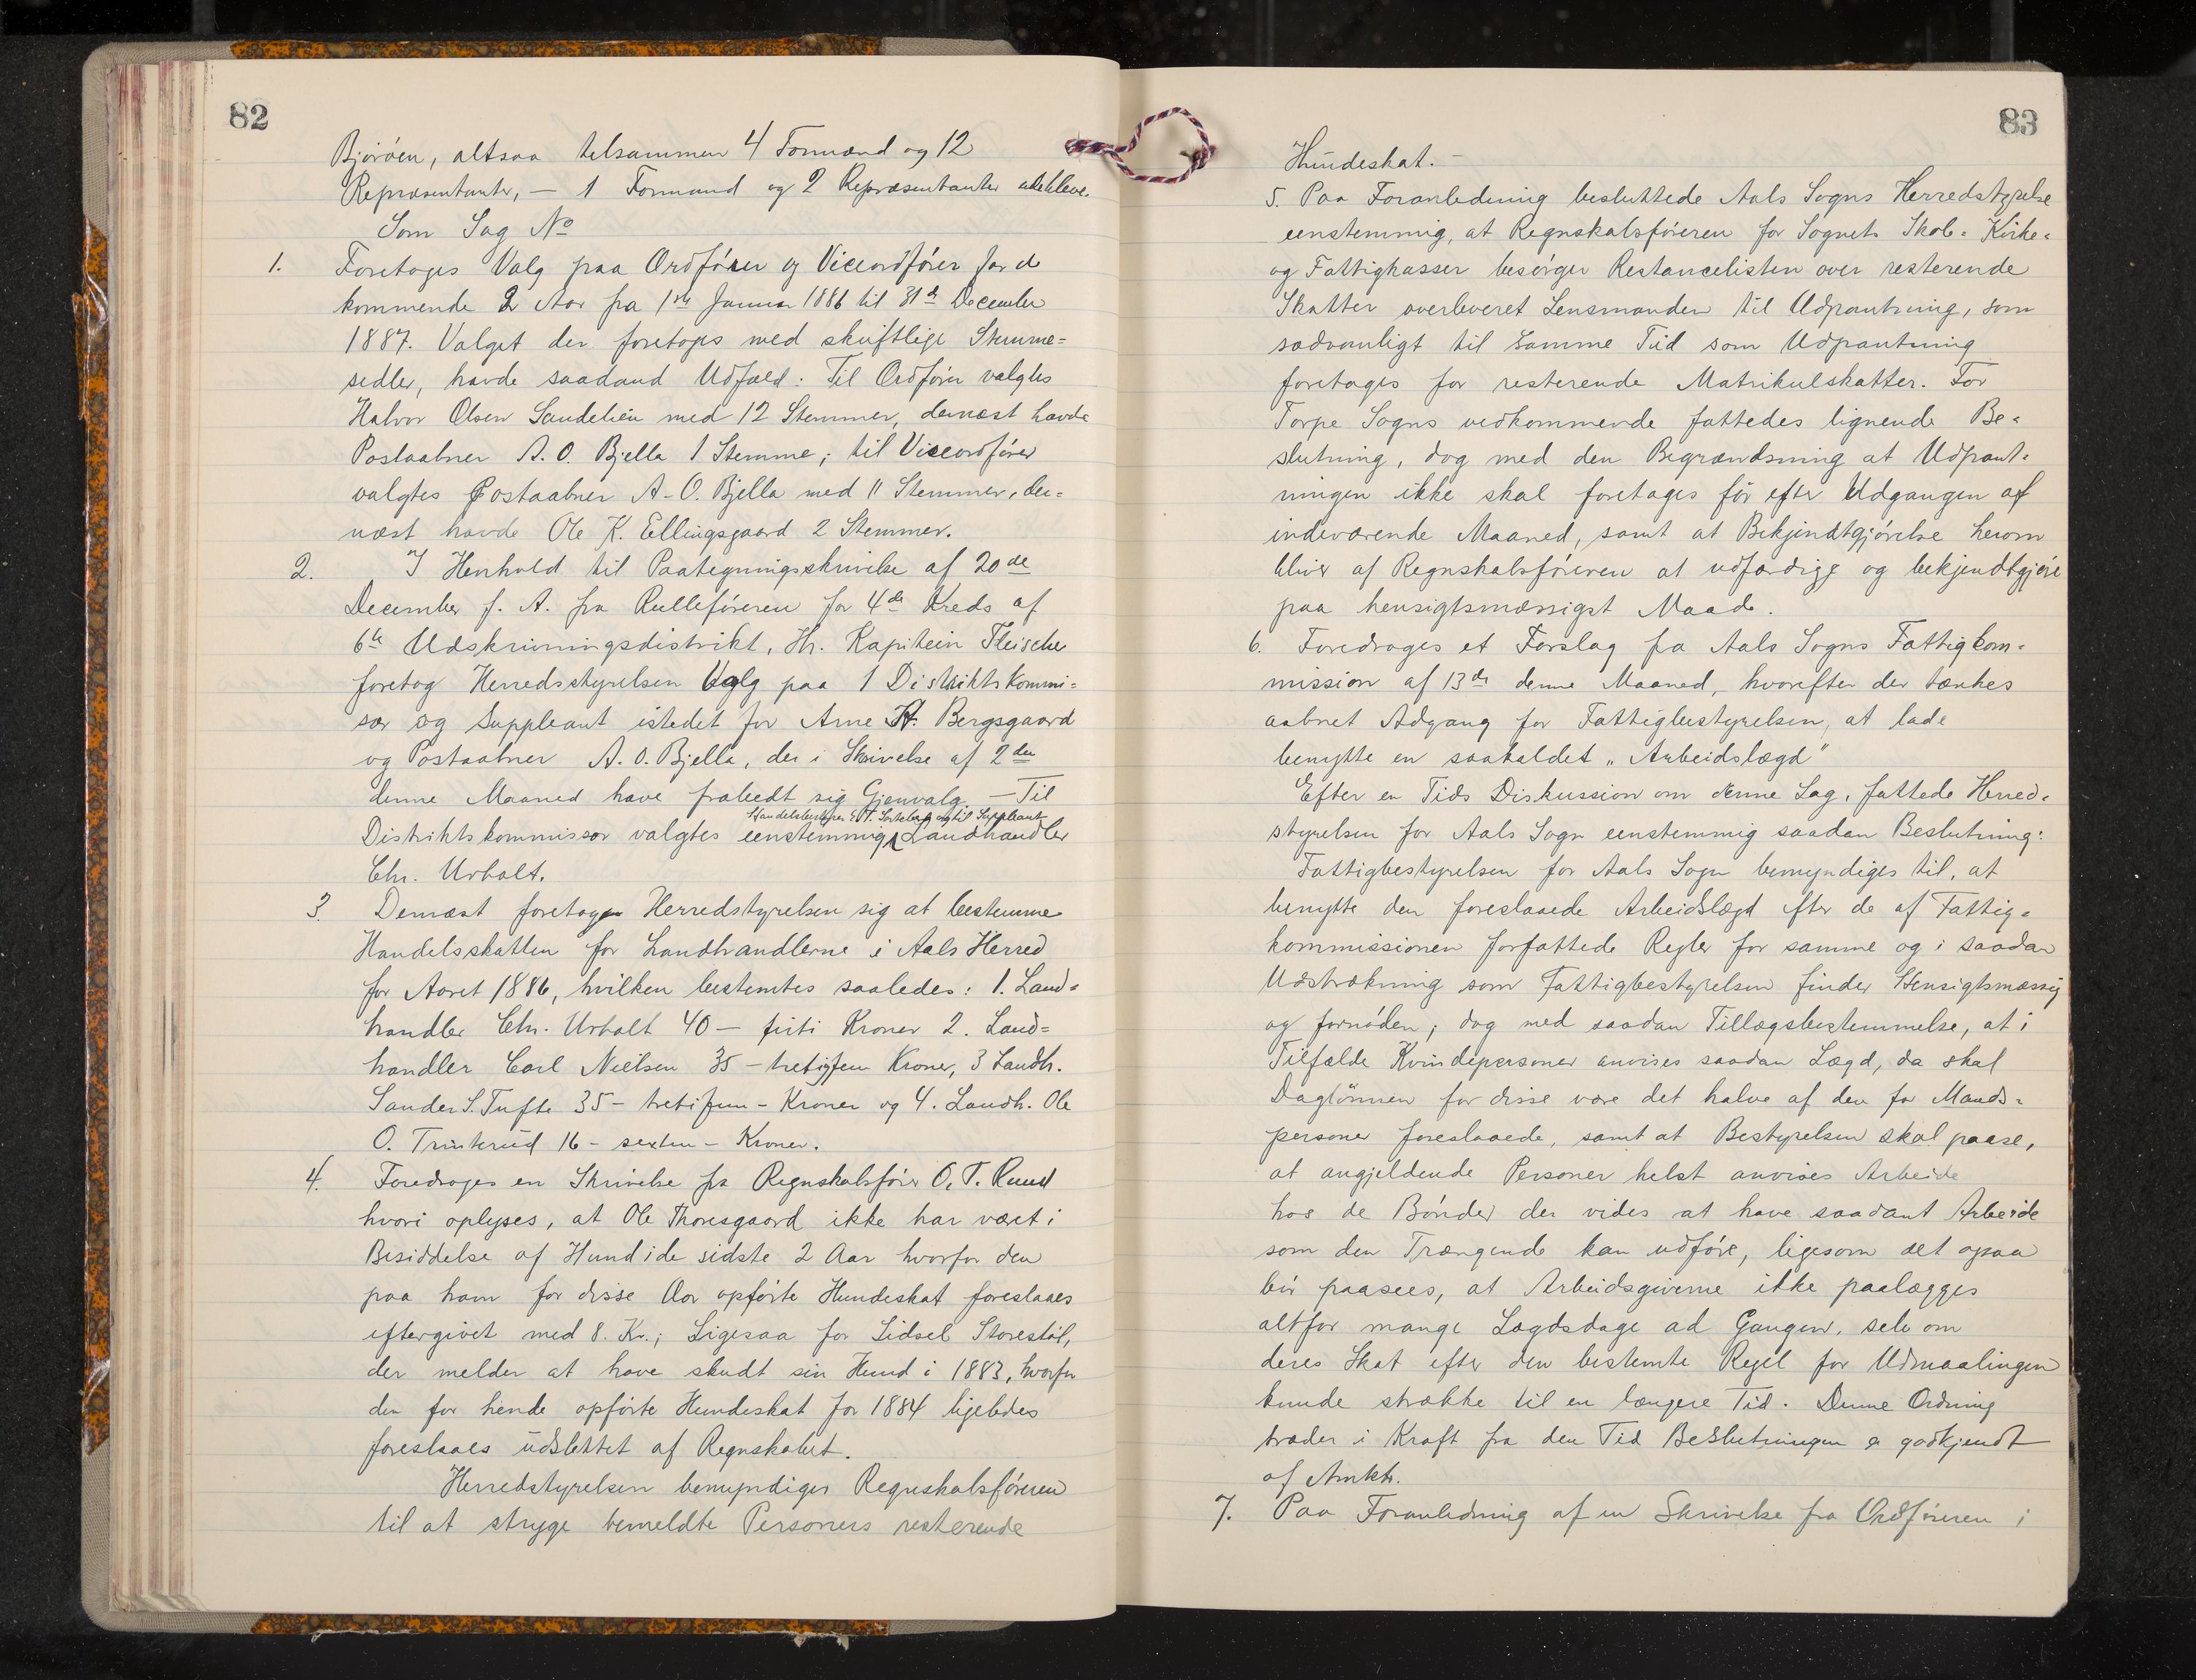 82
Björöen, altsaa tilsammen 4 Formænd og 12
Repræsentanter, — 1 Formand og 2 Repræsentanter udebleve.
Som Sag No
1. Foretoges Valg paa Ordförer og Viceordförer for de
kommende 2 Aar fra 1ste Januar 1886 til 31te December
1887. Valget der foretoges med skriftlige Stemme=
sedler, havde saadand Udfald: Til Ordförer valgtes
Halvor Olsen Sandelien med 12 Stemmer, dernæst havde
Postaabner A. O. Bjella 1 Stemme; til Viceordförer
valgtes Postaabner A. O. Bjella med 11 Stemmer, der=
næst havde Ole K. Ellingsgaard 2 Stemmer.
2. I Henhold til Paategningsskrivelse af 20de
December f. A. fra Rulleföreren for 4de Kreds af
6te Udskrivningsdistrikt, Hr. Kapitein Fleischer
foretog Herredsstyrelsen Valg paa 1 Distriktskommi=
sær og Suppleant istedet for Arne H. Bergsgaard
og Postaabner A. O. Bjella, der i Skrivelse af 2den
denne Maaned have frabedt sig Gjenvalg. — Til
Handelsbestyrer og til Suppleant
Distriktskommissær valgtes eenstemmig Landhandler
Chr. Urholt.
3. Dernæst foretog Herredstyrelsen sig at bestemme
Handelsskatten for Landhandlerne i Aals Herred
for Aaret 1886, hvilken bestemtes saaledes: 1. Land=
handler Chr. Urholt 40 — firti Kroner 2. Land=
handler Carl Nielsen 35 — tretifem Kroner, 3 Landh.
Sander S. Tufte 35 — tretifem — Kroner og 4. Landh. Ole
O. Trinterud 16 — sexten — Kroner.
4. Foredroges en Skrivelse fra Regnskabsförer O. T. Ruud
hvori oplyses, at Ole Thoresgaard ikke har været i
Besiddelse af Hund i de sidste 2 Aar hvorfor den
paa ham for disse Aar opförte Hundeskat foreslaaes
eftergivet med 8. Kr.; Ligesaa for Sidsel Storestöl,
der melder at have skudt sin Hund i 1883, hvorfor
den for hende opförte Hundeskat for 1884 ligeledes
foreslaaes udslettet af Regnskabet.
Herredstyrelsen bemyndiger Regnskabsföreren
til at stryge bemeldte Personers resterende
83
Hundeskat. —
5. Paa Foranledning besluttede Aals Sogns Herredstyrelse
eenstemmig, at Regnskabsföreren for Sognets Skole= Kirke=
og Fattigkasser besörger Restancelisten over resterende
Skatter overleveret Lensmanden til Udpantning, som
sædvanligt til samme Tiid som Udpantning
foretages for resterende Matrikulskatter. For
Torpe Sogns vedkommende fattedes lignende Be=
slutning, dog med den Begrændsning at Udpant=
ningen ikke skal foretages för efter Udgangen af
indeværende Maaned, samt at Bekjendtgjörelse herom
bliver af Regnskabsföreren at udfærdige og bekjendtgjöre
paa hensigtsmæssigst Maade.
6. Foredroges et Forslag fra Aals Sogns Fattigkom=
mission af 13de denne Maaned, hvorefter der tænkes
aabnet Adgang for Fattigbestyrelsen, at lade
benytte en saakaldet „Arbeidslægd"
Efter en Tids Diskussion om denne Sag, fattede Herred=
styrelsen for Aals Sogn eenstemmig saadan Beslutning:
Fattigbestyrelsen for Aals Sogn bemyndiges til, at
benytte den foreslaaede Arbeidslægd efter de af Fattig=
kommissionen forfattede Regler for samme og i saadan
Udstrækning som Fattigbestyrelsen finder Hensigtsmæssig
og fornöden; dog med saadan Tillægsbestemmelse, at i
Tilfælde Kvindepersoner anvises saadan Lægd, da skal
Daglönnen for disse være det halve af den for Mands=
personer foreslaaede, samt at Bestyrelsen skal paase,
at angjeldende Personer helst anvises Arbeide
hos de Bönder der vides at have saadant Arbeide
som den Trængende kan udföre, ligesom det ogsaa
bör paasees, at Arbeidsgiverne ikke paalægges
altfor mange Lægdsdage ad Gangen, selv om
deres Skat efter den bestemte Regel for Udmaalingen
kunde strække til en længere Tid. Denne Ordning
træder i Kraft fra den Tid Beslutningen er godkjendt
af Amtet.
7. Paa Foranledning af en Skrivelse fra Ordföreren i